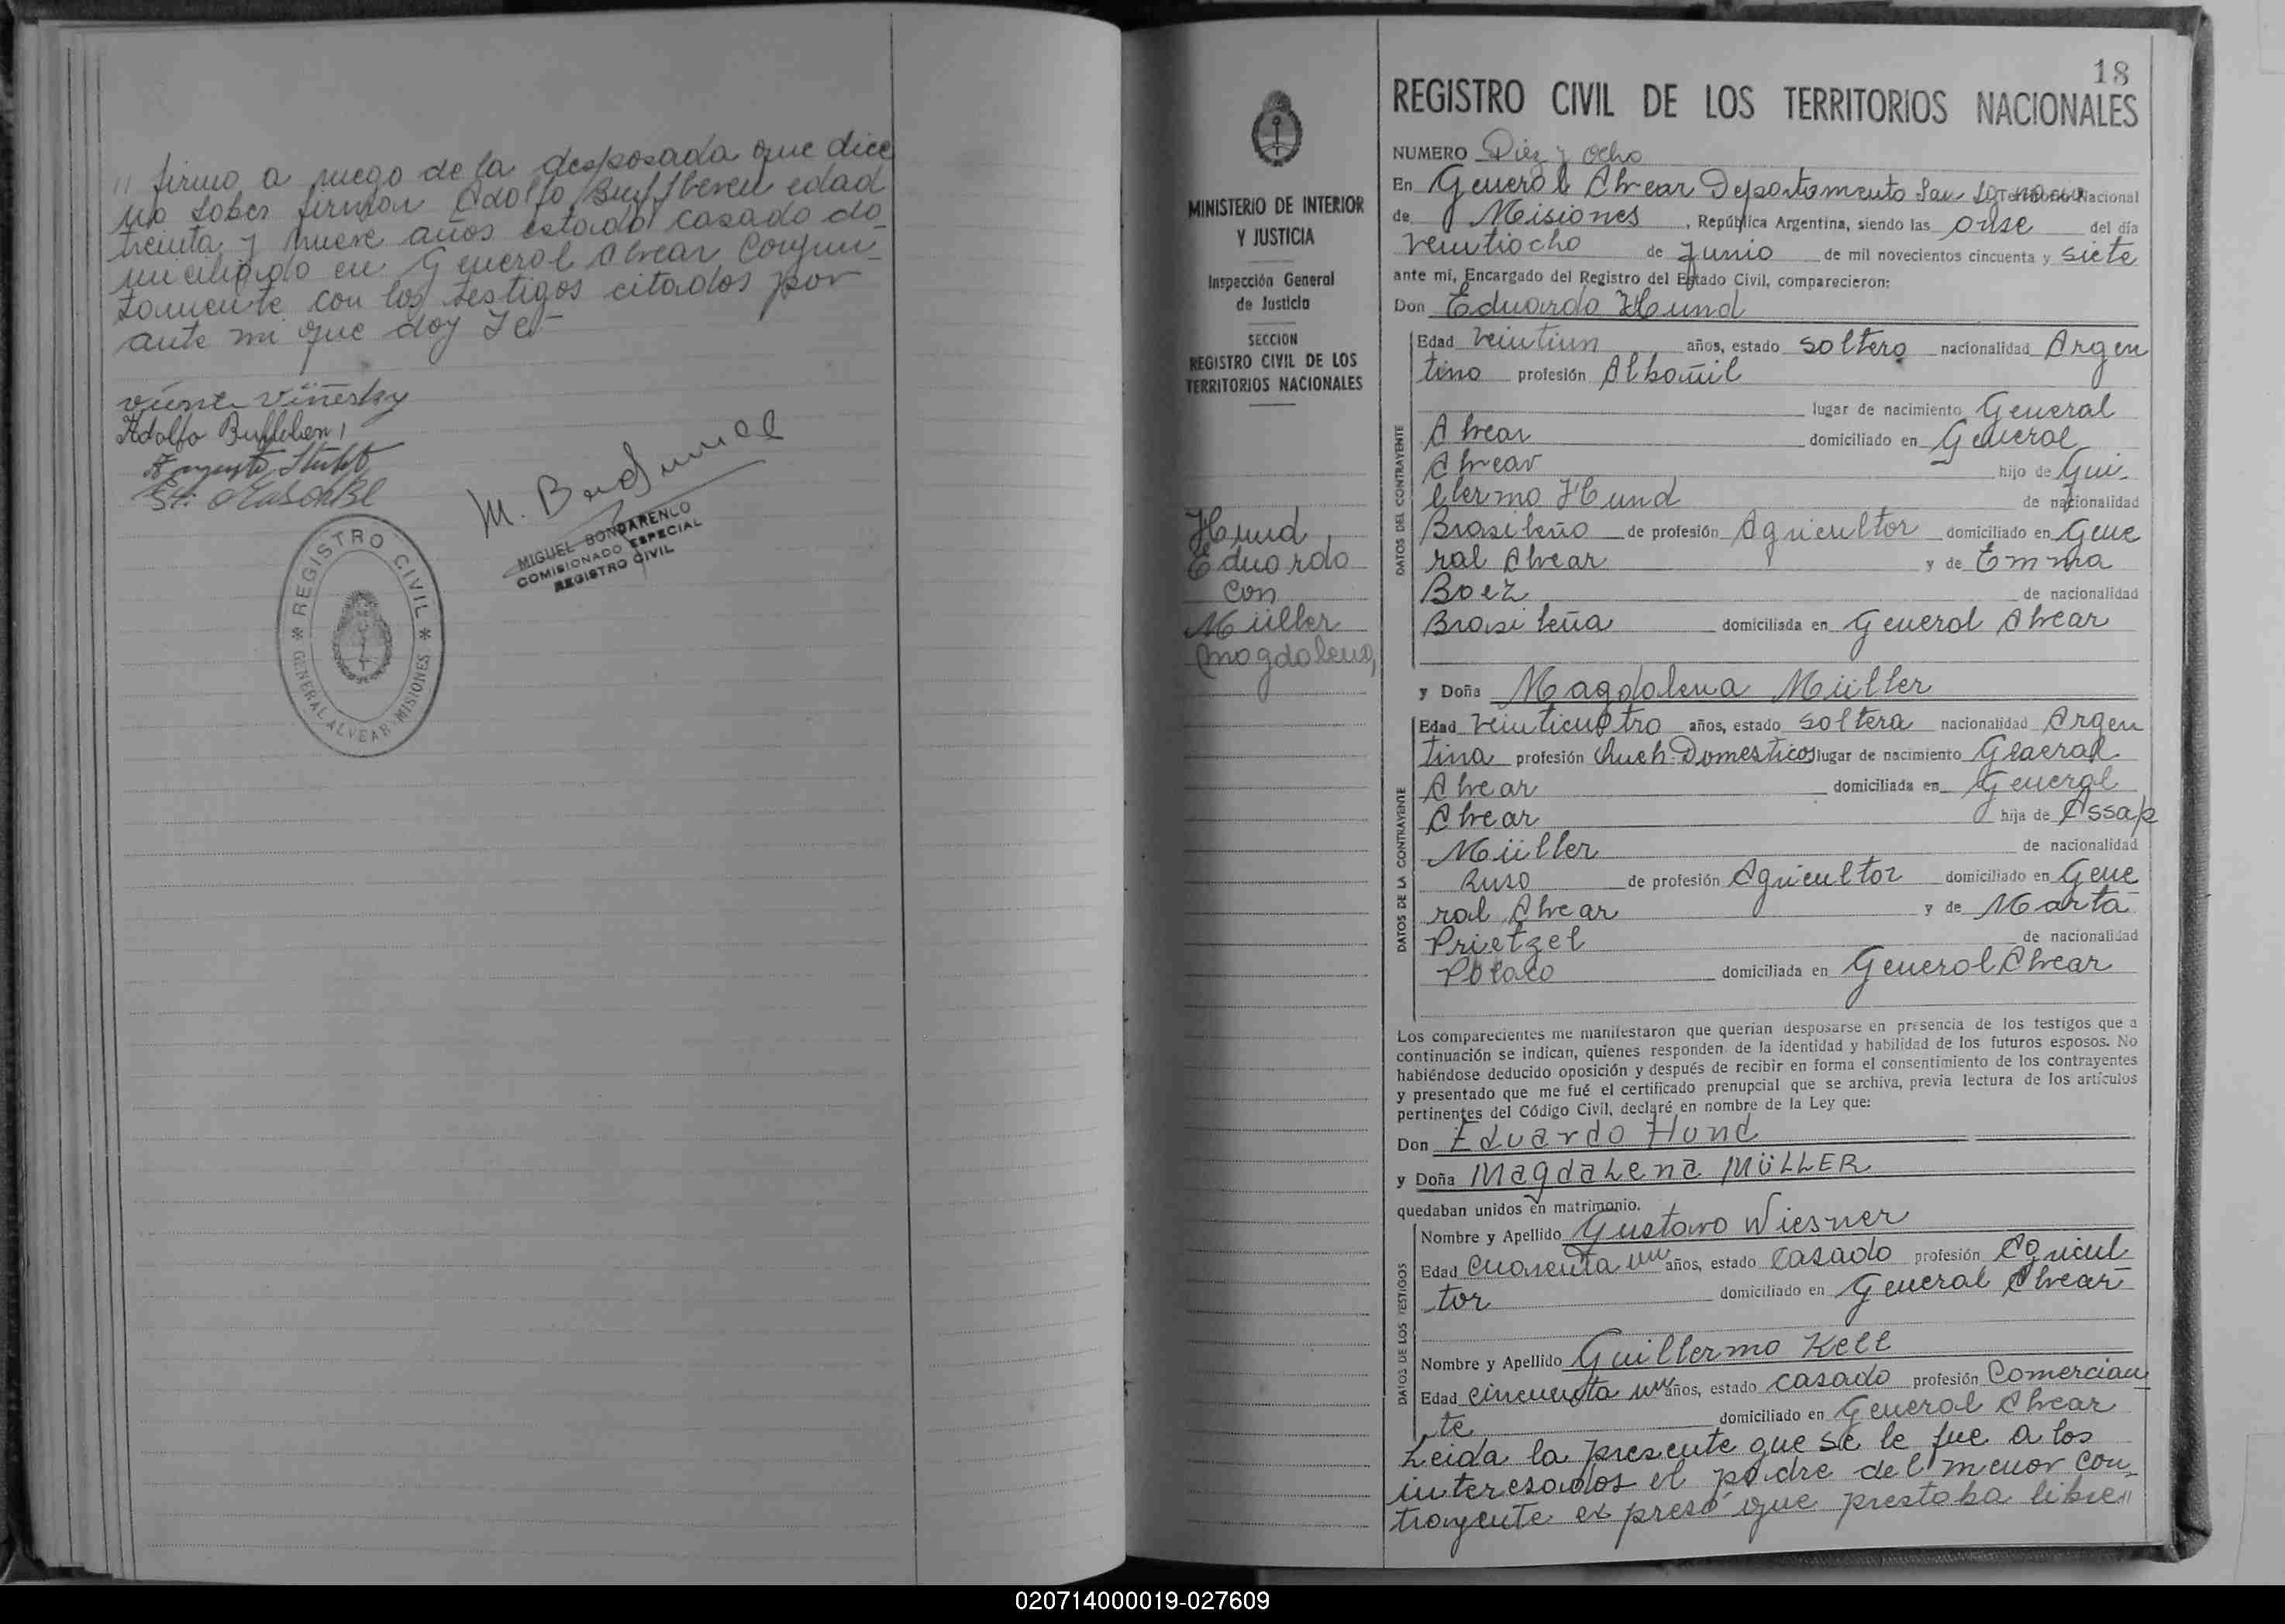 " firmo a ruego de la desposada que dice
no saber firmar Adolfo edad
treinta y nueve años estado casado do
miciliado en General Alvear Conjun-
tamente con los testigos citados por
ante mi que doy Fe-
Adolfo
M.
MIGUEL BONDARENCO
COMISIONADO ESPECIAL
REGISTRO CIVIL
* REGISTRO CIVIL *
GENERAL ALVEAR - MISIONES
MINISTERIO DE INTERIOR
Y JUSTICIA
Inspección General
de Justicia
SECCION
REGISTRO CIVIL DE LOS
TERRITORIOS NACIONALES
Hund
Eduardo
con
Müller
Magdalena
18
REGISTRO CIVIL DE LOS TERRITORIOS NACIONALES
NUMERO Diez y ocho
En General Alvear Departamento San Nacional
de Misiones , República Argentina, siendo las onse del día
veintiocho de Junio de mil novecientos cincuenta y siete
ante mí, Encargado del Registro del Estado Civil, comparecieron:
Don Eduardo Hund
DATOS DEL CONTRAYENTE
Edad veintiun años, estado soltero nacionalidad Argen
tino profesión Albañil
lugar de nacimiento General
Alvear domiciliado en General
Alvear hijo de Gui-
llermo Hund de nacionalidad
Brasileño de profesión Agricultor domiciliado en Gene
ral Alvear y de Emma
Boez de nacionalidad
Brasileña domiciliada en General Alvear
y Doña Magdalena Müller
DATOS DE LA CONTRAYENTE
Edad veinticuatro años, estado soltera nacionalidad Argen
tina profesión Queh. Domesticos lugar de nacimiento General
Alvear domiciliada en General
Alvear hija de Assap
Müller de nacionalidad
Ruso de profesión Agricultor domiciliado en Gene
ral Alvear y de Marta
Prietzel de nacionalidad
Polaco domiciliada en General Alvear
Los comparecientes me manifestaron que querían desposarse en presencia de los testigos que a
continuación se indican, quienes responden de la identidad y habilidad de los futuros esposos. No
habiéndose deducido oposición y después de recibir en forma el consentimiento de los contrayentes
y presentado que me fué el certificado prenupcial que se archiva, previa lectura de los artículos
pertinentes del Código Civil, declaré en nombre de la Ley que:
Don Eduardo Hund
y Doña Magdalena MÜLLER
quedaban unidos en matrimonio.
DATOS DE LOS TESTIGOS
Nombre y Apellido Gustavo Wiesner
Edad cuarenta un años, estado casado profesión Agricul-
tor domiciliado en General Alvear
Nombre y Apellido Guillermo Kell
Edad cincuenta un años, estado casado profesión Comercian_
te domiciliado en General Alvear
Leida la presente que se le fue a los
interesados el padre del menor con_
trayente expresó que prestaba libre "
020714000019-027609